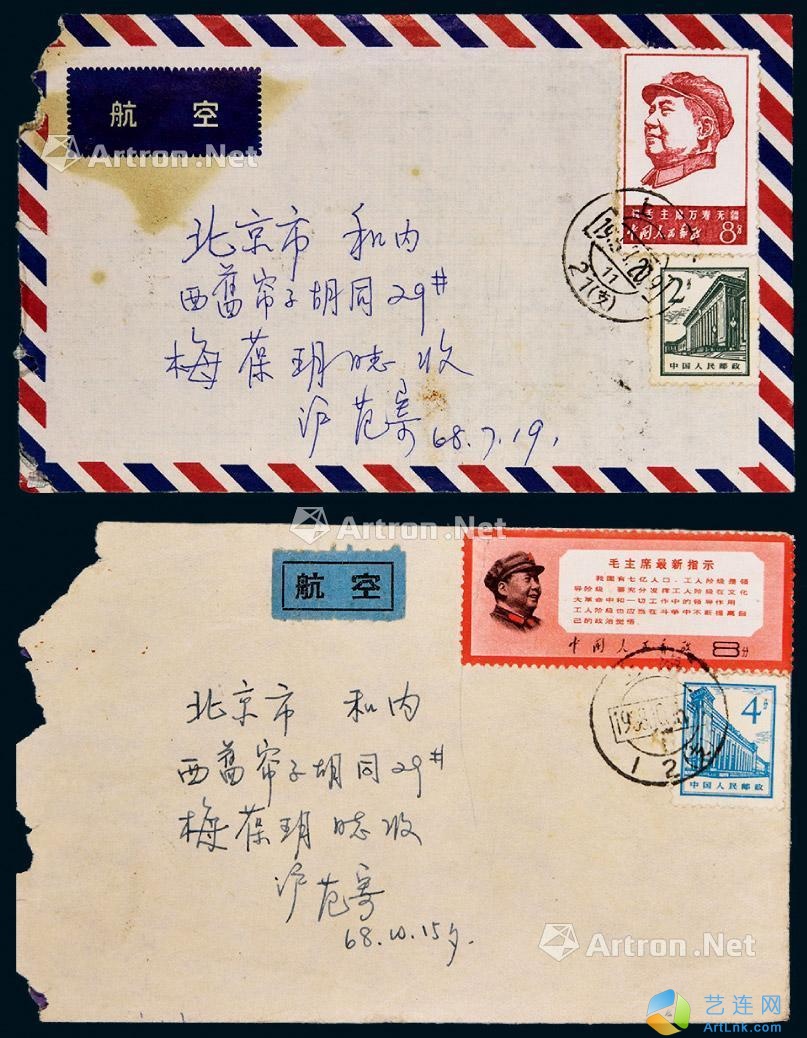 航 空
Artron.Net
祝毛主席万寿无疆
中国人民邮政 8分
上
1968.7.20.9
11
27(支)
2分
中国人民邮政
北京市 和内
西旧帘子胡同29#
梅葆玥同志收
沪范寄 68.7.19.
Artron.Net
航 空
毛主席最新指示
我国有七亿人口，工人阶级是领
导阶级。要充分发挥工人阶级在文化
大革命中和一切工作中的领导作用
工人阶级也应当在斗争中不断提高自
己的政治觉悟。
中国人民邮政 8分
4分
中国人民邮政
北京市 和内
西旧帘子胡同29#
梅葆玥同志收
沪范寄
68.10.15夕.
Artron.Net
艺连网
ArtLnk.com